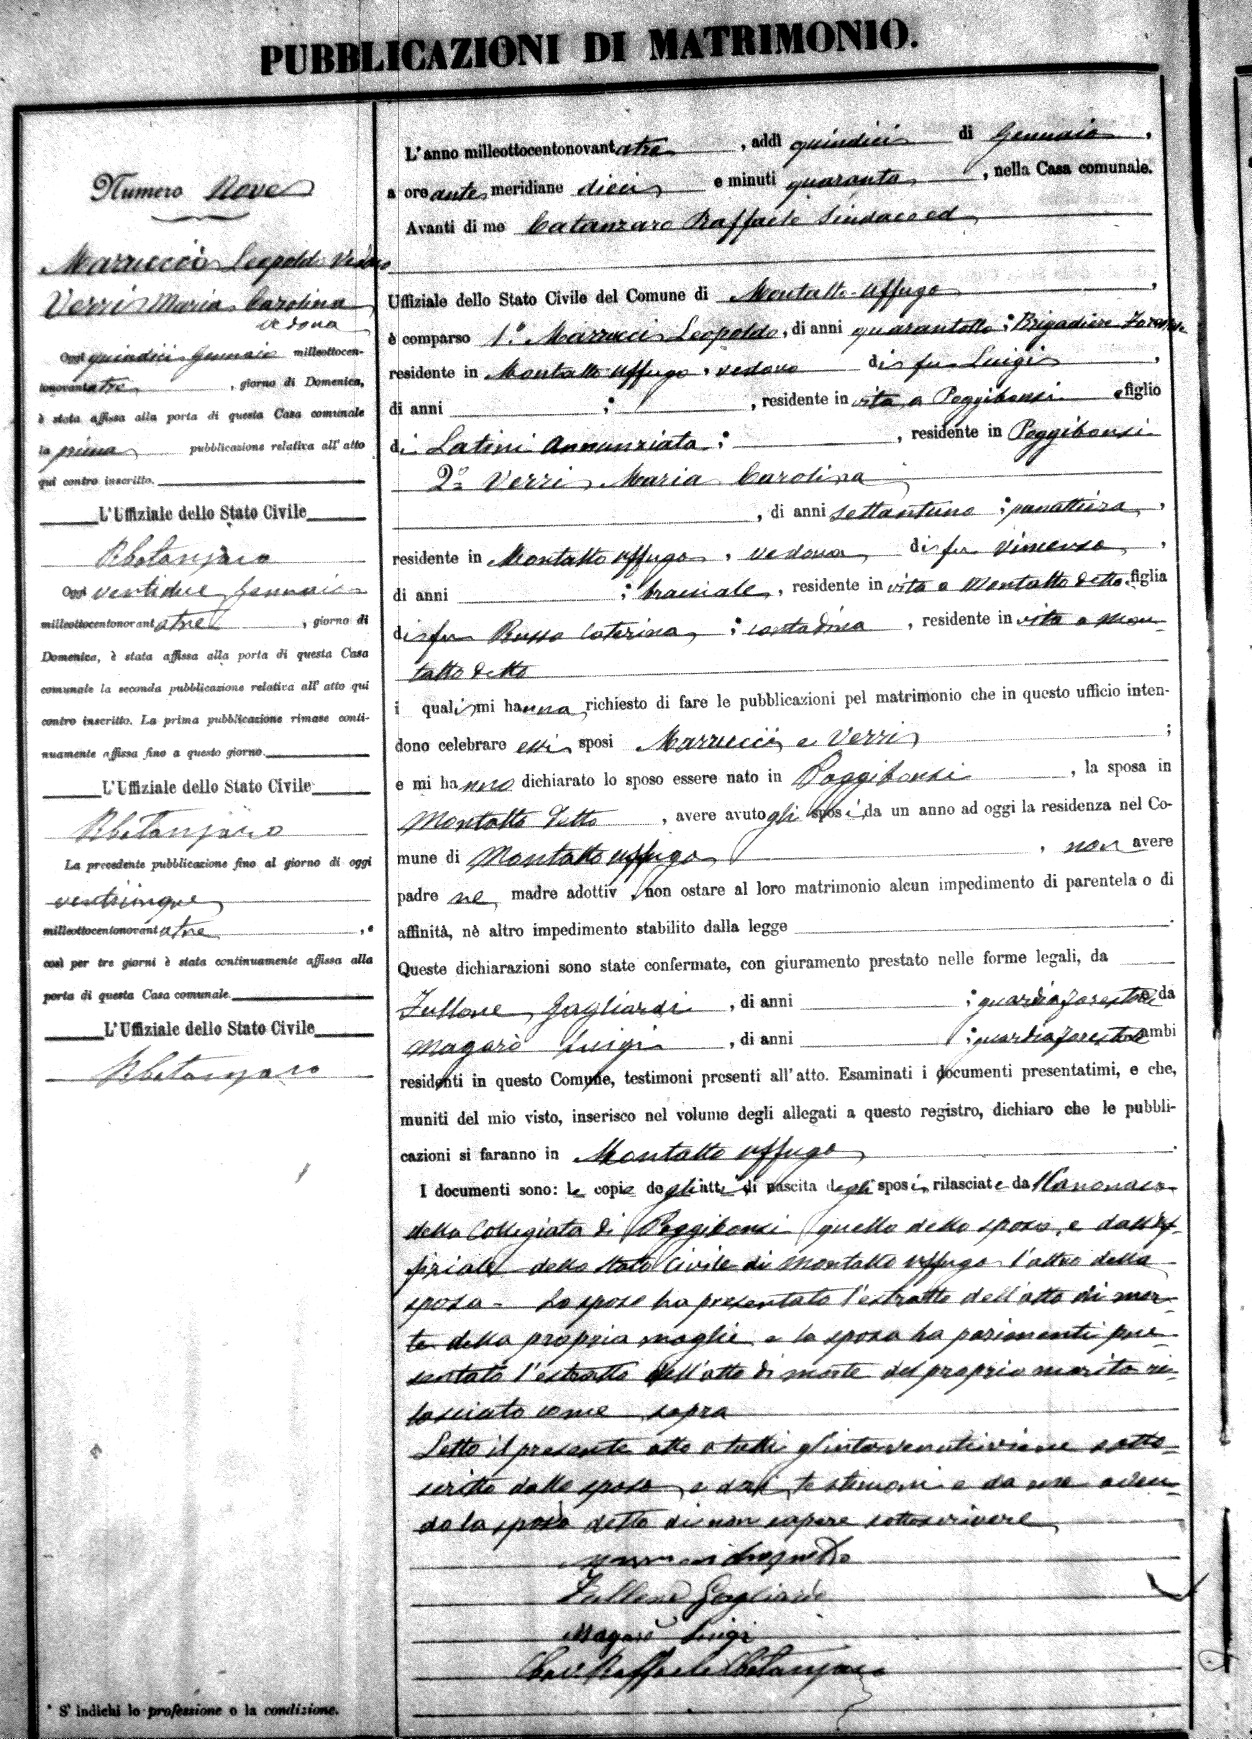 PUBBLICAZIONI DI MATRIMONIO.
Numero Nove
Marrucci Leopoldo Vedovo
Verri Maria Carolina
vedova
Oggi quindici Gennaio milleottocen-
tonovantatre, giorno di Domenica,
è stata affissa alla porta di questa Casa comunale
la prima pubblicazione relativa all'atto
qui contro inscritto.
L'Uffiziale dello Stato Civile
RCatanzaro
Oggi ventidue Gennaio
milleottocentonovantatre, giorno di
Domenica, è stata affissa alla porta di questa Casa
comunale la seconda pubblicazione relativa all'atto qui
contro inscritto. La prima pubblicazione rimase conti-
nuamente affissa fino a questo giorno.
L'Uffiziale dello Stato Civile
RCatanzaro
La precedente pubblicazione fino al giorno di oggi
venticinque
milleottocentonovantatre, e
così per tre giorni è stata continuamente affissa alla
porta di questa Casa comunale.
L'Uffiziale dello Stato Civile
RCatanzaro
* S' indichi lo professione o la condizione.
L'anno milleottocentonovantatre, addì quindici di Gennaio,
a ore ante meridiane dieci e minuti quaranta, nella Casa comunale.
Avanti di me Catanzaro Raffaele Sindaco ed
Uffiziale dello Stato Civile del Comune di Montalto Uffugo,
è comparso 1.° Marrucci Leopoldo, di anni quarantotto; Brigadiere Forestale
residente in Montalto Uffugo, vedovo di fu Luigi,
di anni ; , residente in vita a Poggibonsi e figlio
di Latini Annunziata; , residente in Poggibonsi
2° Verri Maria Carolina
, di anni settantuno; panattiera,
residente in Montalto Uffugo, vedova di fu Vincenzo,
di anni ; bracciale, residente in vita a Montalto detto figlia
di fu Russo Caterina; contadina, residente in vita a Mon-
talto detto
i quali mi hanno richiesto di fare le pubblicazioni pel matrimonio che in questo ufficio inten-
dono celebrare essi sposi Marrucci e Verri ;
e mi hanno dichiarato lo sposo essere nato in Poggibonsi, la sposa in
Montalto detto, avere avuto gli sposi da un anno ad oggi la residenza nel Co-
mune di Montalto Uffugo, non avere
padre ne madre adottiv , non ostare al loro matrimonio alcun impedimento di parentela o di
affinità, nè altro impedimento stabilito dalla legge.
Queste dichiarazioni sono state confermate, con giuramento prestato nelle forme legali, da
Fullone Gagliardi, di anni ; guardia forestale e da
Magarò Luigi, di anni ; guardia forestale ambi
residenti in questo Comune, testimoni presenti all'atto. Esaminati i documenti presentatimi, e che,
muniti del mio visto, inserisco nel volume degli allegati a questo registro, dichiaro che le pubbli-
cazioni si faranno in Montalto Uffugo.
I documenti sono: le copie degli atti di nascita degli sposi, rilasciate da
della Collegiata di Poggibonsi quello dello sposo, e dall'Uf-
fiziale dello Stato Civile di Montalto Uffugo l'altro della
sposa - Lo sposo ha presentato l'estratto dell'atto di mor-
te della propria moglie e la sposa ha parimenti pre-
sentato l'estratto dell'atto di morte del proprio marito ri-
lasciato come sopra
Letto il presente atto a tutti gl'intervenuti viene sotto-
scritto dallo sposo, e dai testimoni e da me aven-
do la sposa detto di non sapere sottoscrivere
Fullone Gagliardi
Magarò Luigi
Cav. Raffaele Catanzaro